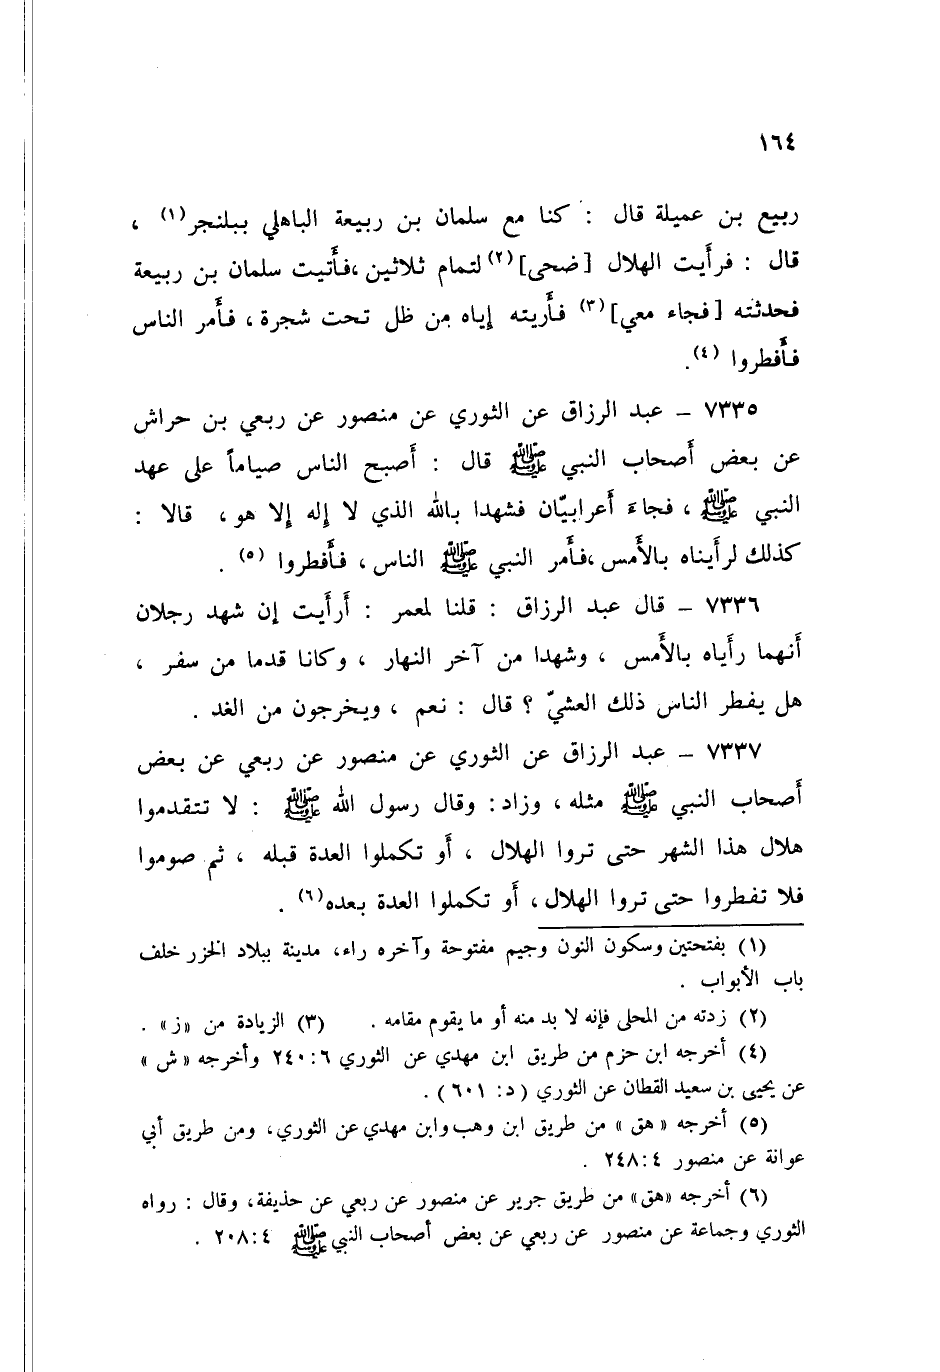 ١٦٤
ربيع بن عميلة قال : كنا مع سلمان بن ربيعة الباهلي ببلنجر(١) ،
قال : فرأيت الهلال [ضحى](٢) لتمام ثلاثين ،فأتيت سلمان بن ربيعة
فحدثته [فجاء معي](٣) فأريته إياه من ظل تحت شجرة ، فأمر الناس
فأفطروا (٤).
٧٣٣٥ – عبد الرزاق عن الثوري عن منصور عن ربعي بن حراش
عن بعض أصحاب النبي ﷺ قال : أصبح الناس صياماً على عهد
النبي ﷺ ، فجاءَ أعرابيّان فشهدا بالله الذي لا إله إلا هو ، قالا :
كذلك لرأيناه بالأمس ،فأمر النبي ﷺ الناس ، فأفطروا (٥) .
٧٣٣٦ – قال عبد الرزاق : قلنا لمعمر : أرأيت إن شهد رجلان
أنهما رأياه بالأمس ، وشهدا من آخر النهار ، وكانا قدما من سفر ،
هل يفطر الناس ذلك العشيّ ؟ قال : نعم ، ويخرجون من الغد .
٧٣٣٧ – عبد الرزاق عن الثوري عن منصور عن ربعي عن بعض
أصحاب النبي ﷺ مثله ، وزاد : وقال رسول الله ﷺ : لا تتقدموا
هلال هذا الشهر حتى تروا الهلال ، أو تكملوا العدة قبله ، ثم صوموا
فلا تفطروا حتى تروا الهلال ، أو تكملوا العدة بعده(٦) .
(١) بفتحتين وسكون النون وجيم مفتوحة وآخره راء، مدينة ببلاد الخزر خلف
باب الأبواب .
(٢) زدته من المحلى فإنه لا بد منه أو ما يقوم مقامه . (٣) الزيادة من «ز» .
(٤) أخرجه ابن حزم من طريق ابن مهدي عن الثوري ٦: ٢٤٠ وأخرجه « ش »
عن يحيى بن سعيد القطان عن الثوري ( د: ٦٠١ ) .
(٥) أخرجه « هق » من طريق ابن وهب وابن مهدي عن الثوري، ومن طريق أبي
عوانة عن منصور ٤: ٢٤٨ .
(٦) أخرجه «هق» من طريق جرير عن منصور عن ربعي عن حذيفة، وقال : رواه
الثوري وجماعة عن منصور عن ربعي عن بعض أصحاب النبي ﷺ ٤: ٢٠٨ .